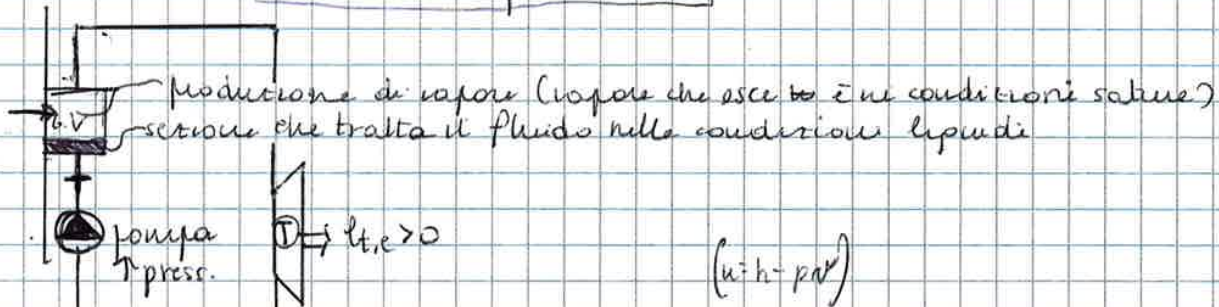 produzione di vapore (vapore che esce è in condizioni sature)
G.V
sezione che tratta il fluido nelle condizioni liquidi
pompa
↑ press.
T ⇒ lt,e > 0
(u = h - pv)